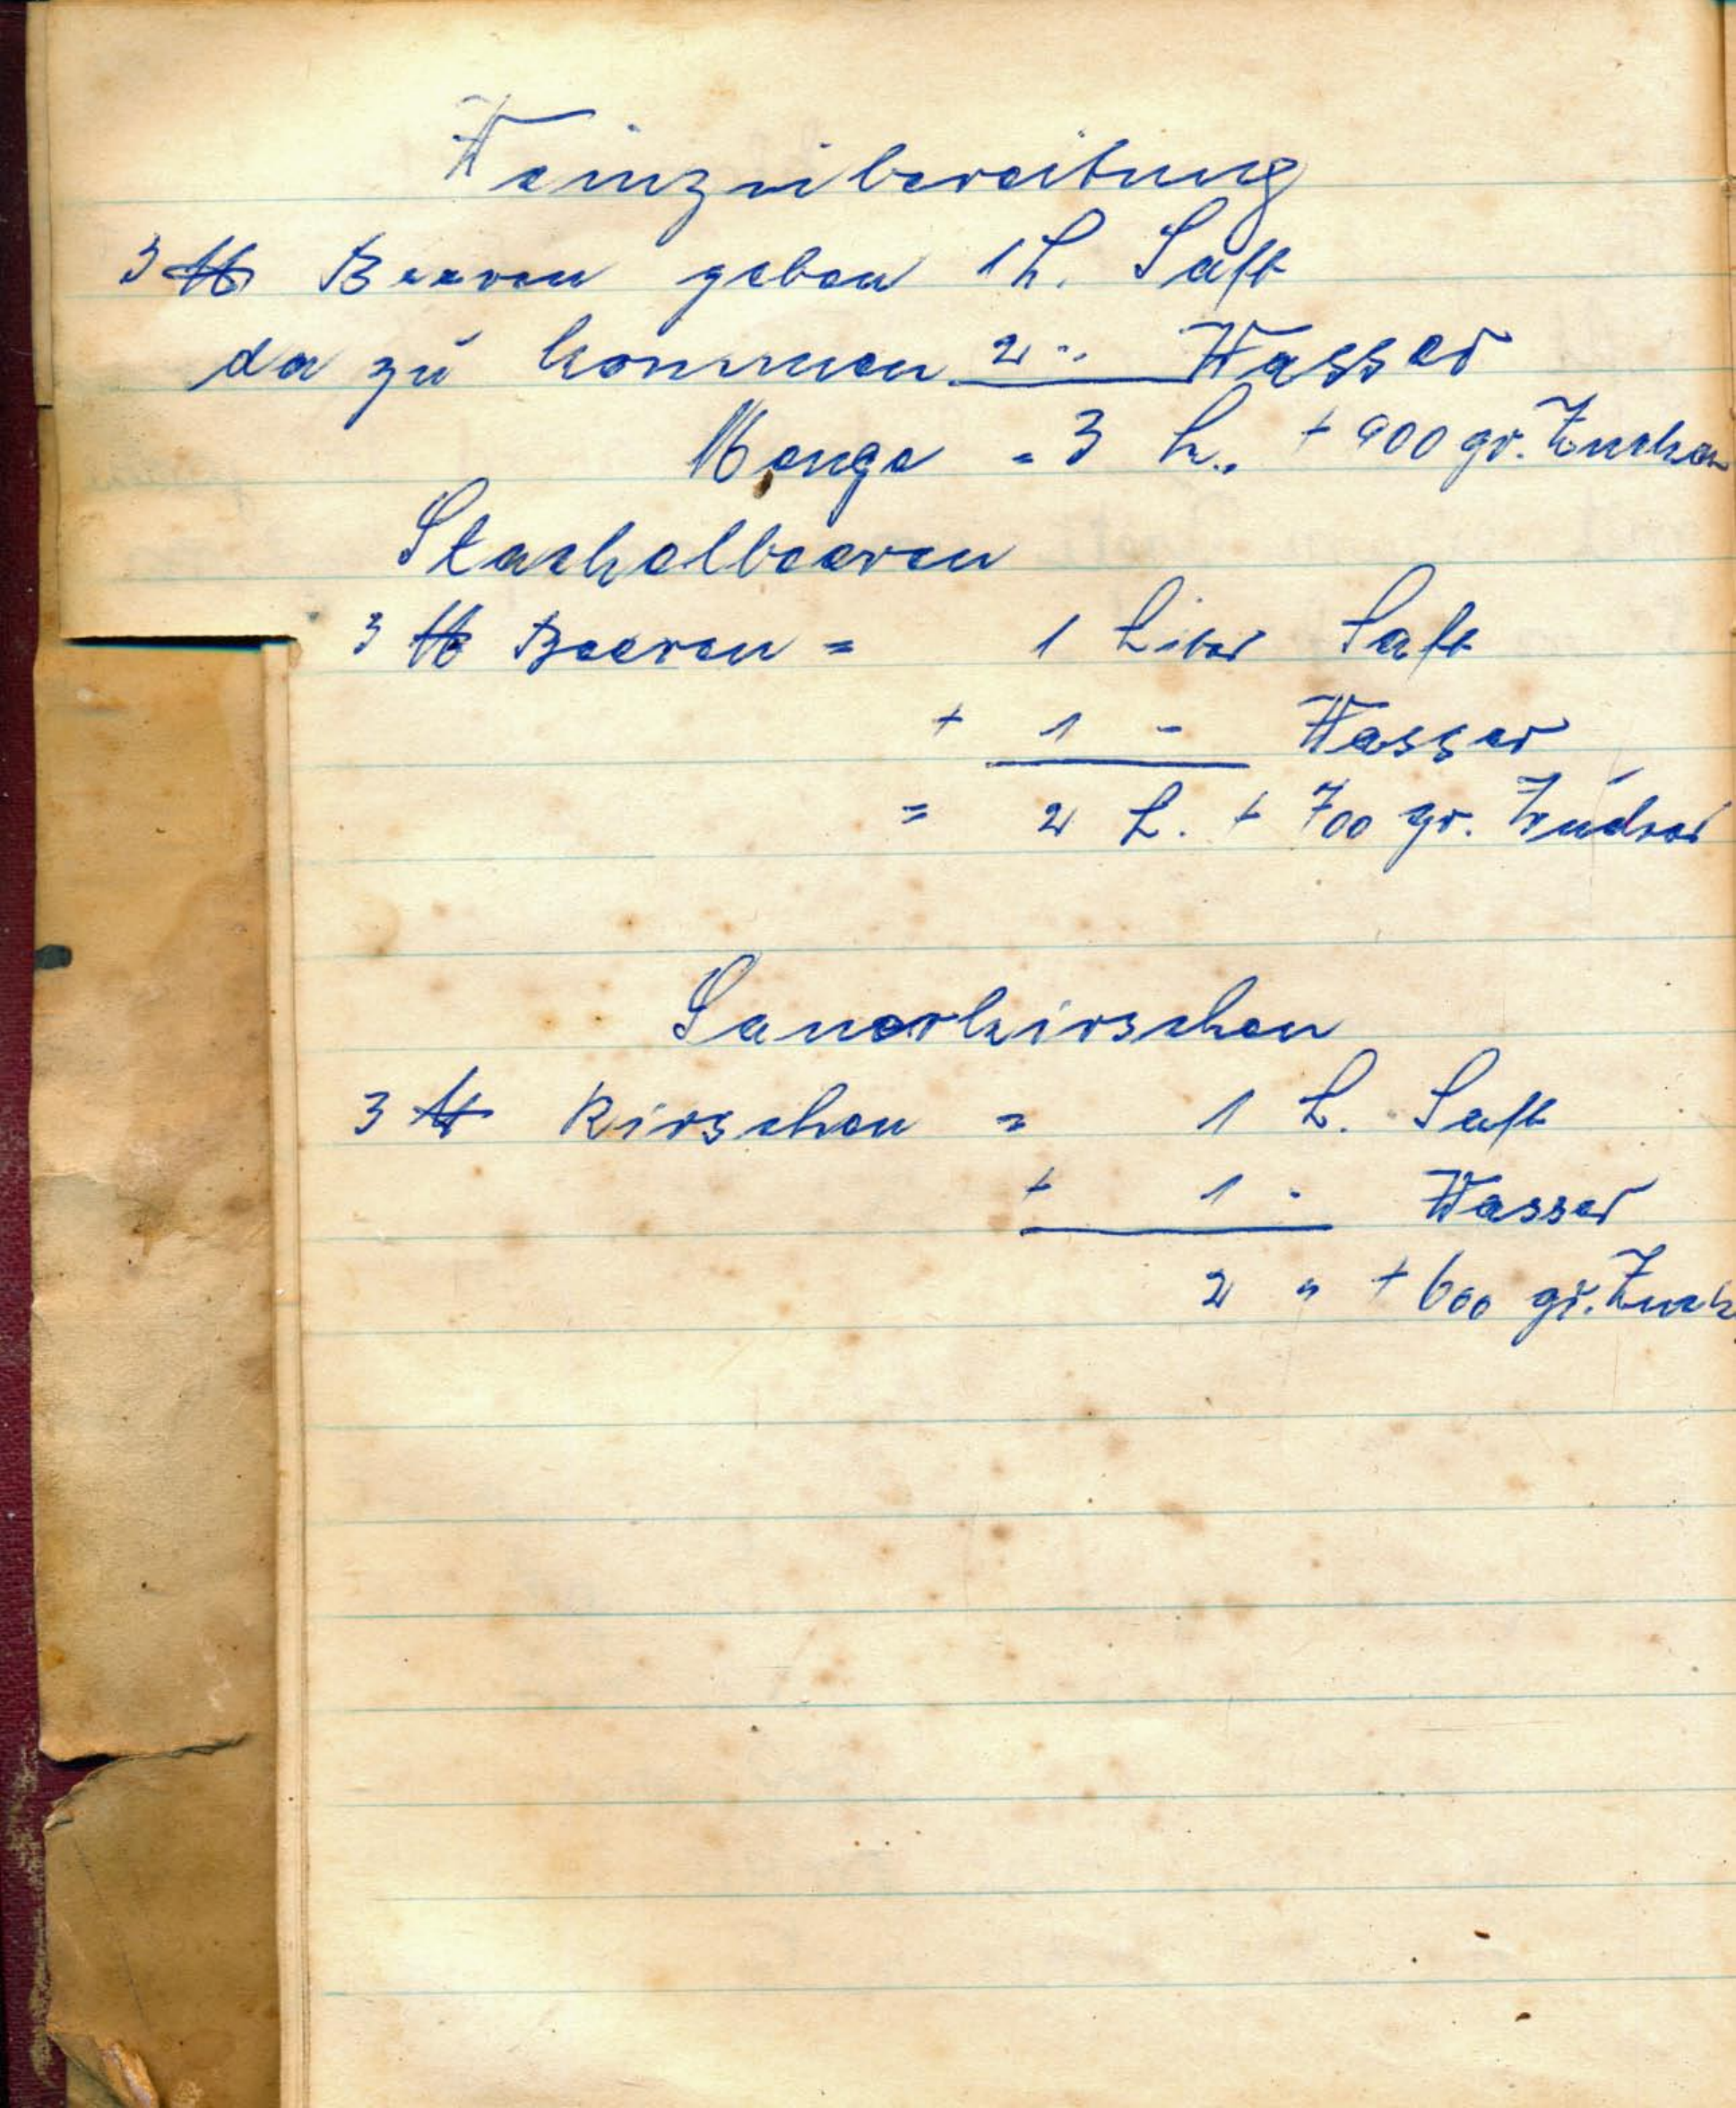 Weinzubereitung
3 ℔ Beeren geben 1 L. Saft
da zu kommen 2 " Wasser
Menge = 3 L. + 900 gr. Zucker
Stachelbeeren
3 ℔ Beeren = 1 Liter Saft
+ 1 - Wasser
= 2 L. + 700 gr. Zucker
Sauerkirschen
3 ℔ Kirschen = 1 L. Saft
+ 1 - Wasser
2 " + 600 gr. Zuck